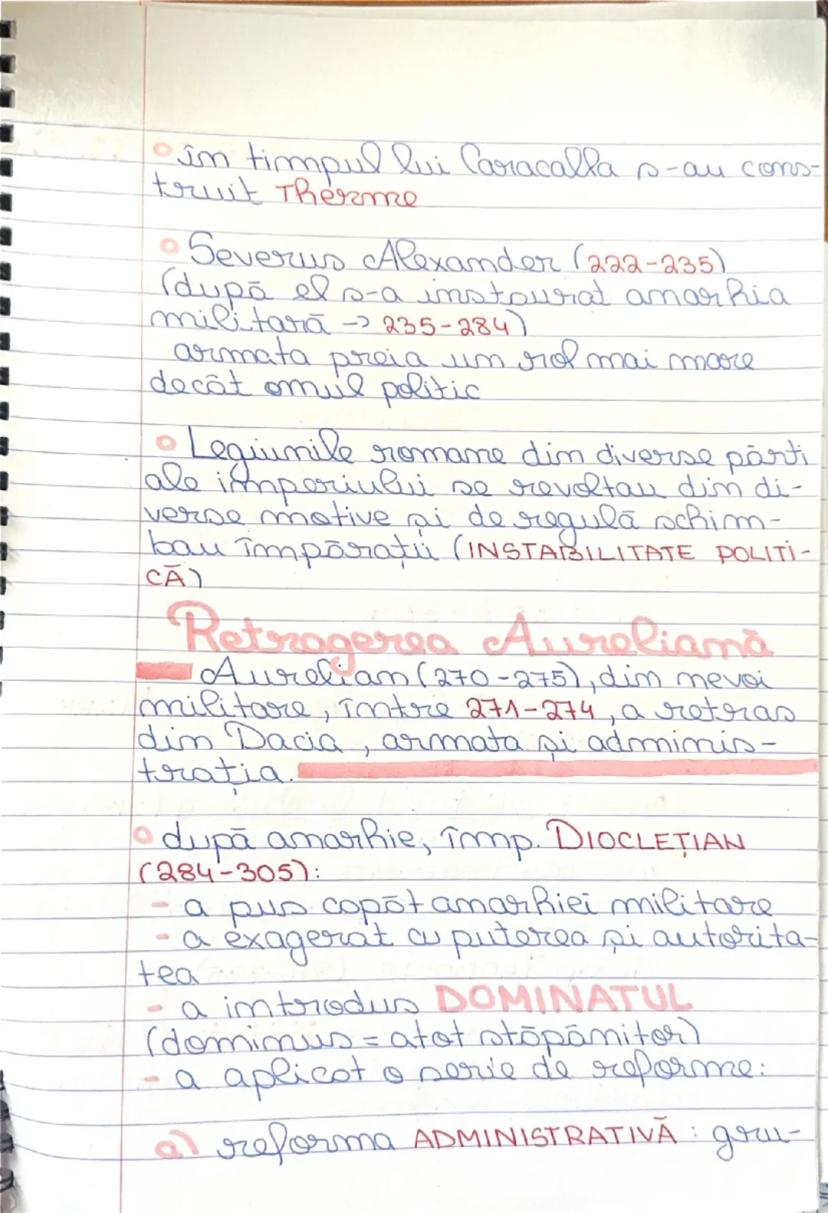 în timpul lui Caracalla s-au cons-
truit Therme
Severus Alexander (222-235)
(după el s-a instaurat anarhia
militară -> 235-284)
armata preia un rol mai mare
decât omul politic
Legiunile romane din diverse părți
ale imperiului se revoltau din di-
verse motive și de regulă schim-
bau împărații (INSTABILITATE POLITI-
CĂ)
Retragerea Aureliană
Aurelian (270-275), din nevoi
militare, între 271-274, a retras
din Dacia, armata și adminis-
trația.
după anarhie, împ. DIOCLEȚIAN
(284-305):
- a pus capăt anarhiei militare
- a exagerat cu puterea și autorita-
tea
- a introdus DOMINATUL
(dominus = atot stăpânitor)
- a aplicat o serie de reforme:
a) reforma ADMINISTRATIVĂ: gru-